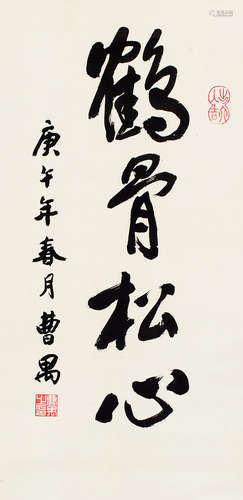 鹤骨松心
庚午年春月曹禺